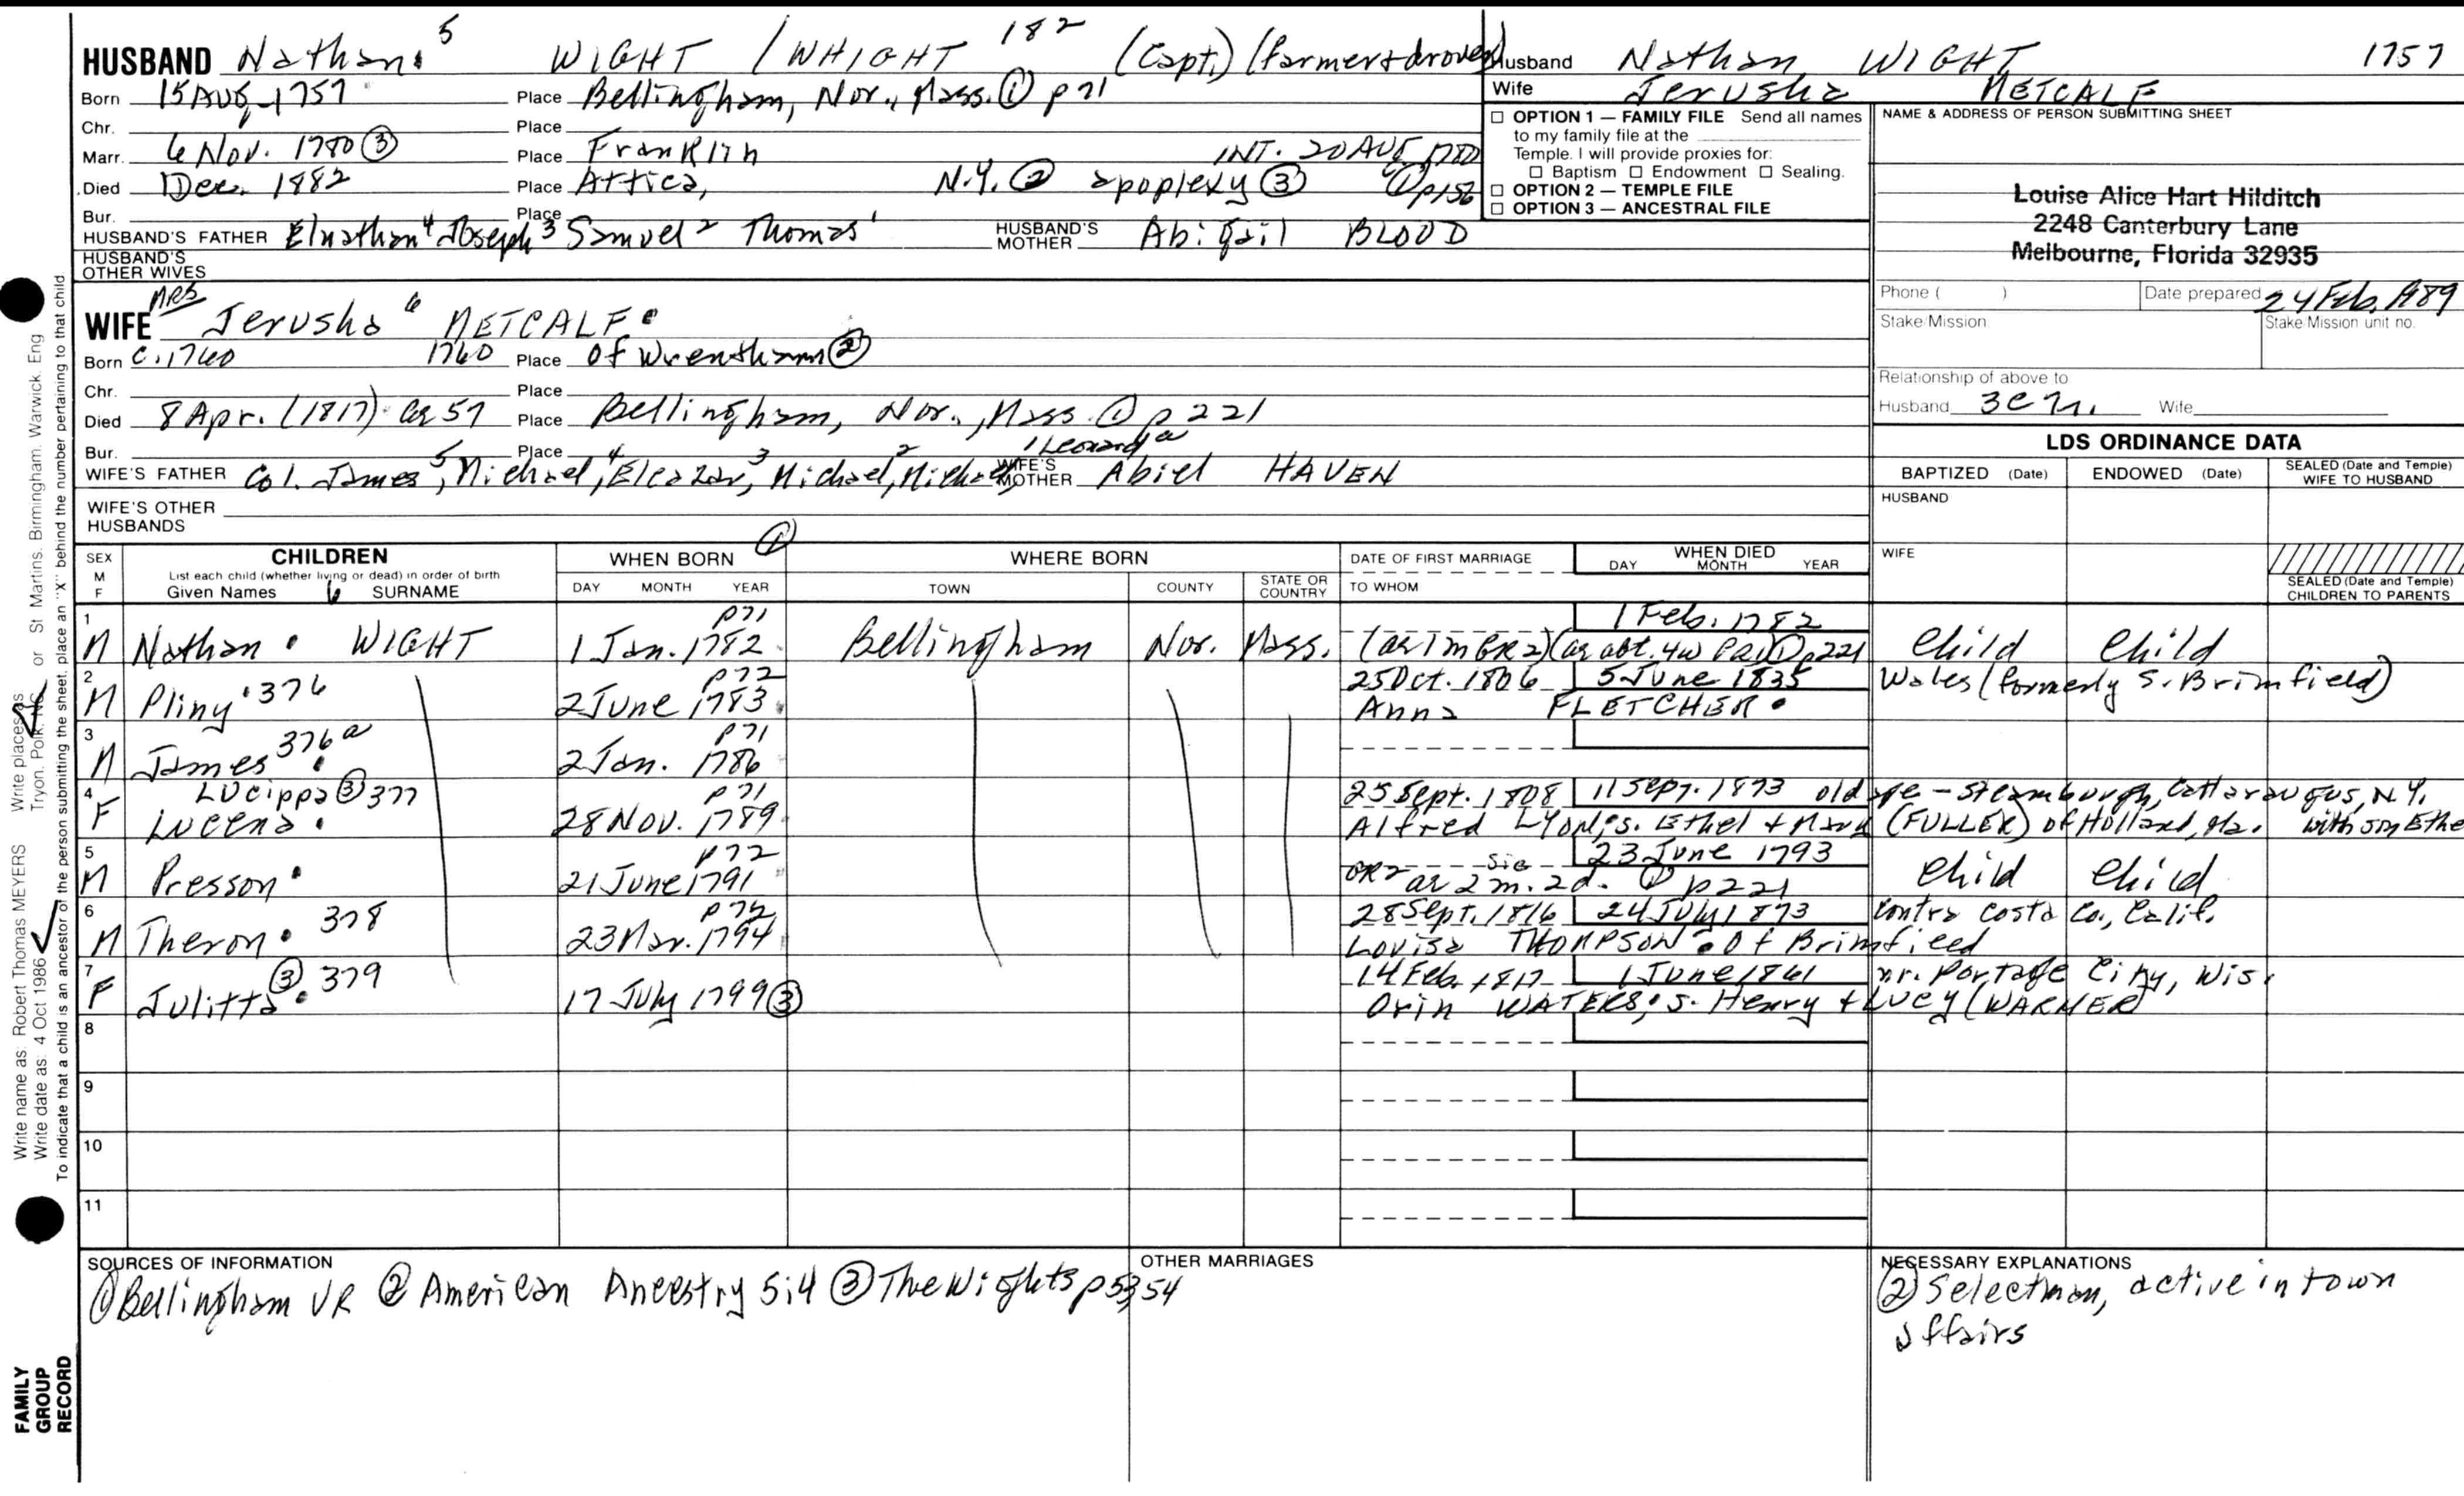 HUSBAND Nathan 5 WIGHT / WHIGHT 182 (Capt.) (farmer & drover)
Husband Nathan WIGHT 1757
Wife Jerusha METCALF
Born 15 AUG 1757 Place Bellingham, Nor., Mass. ① p 71
Chr. Place
Marr. 6 Nov. 1780 ③ Place Franklin INT. 20 AUG 1780 ① p156
Died Dec. 1882 Place Attica, N.Y. ② apoplexy ③
Bur. Place
HUSBAND'S FATHER Elnathan 4 Joseph 3 Samuel 2 Thomas 1 HUSBAND'S MOTHER Abigail BLOOD
HUSBAND'S OTHER WIVES
☐ OPTION 1 — FAMILY FILE Send all names
to my family file at the
Temple. I will provide proxies for:
☐ Baptism ☐ Endowment ☐ Sealing.
☐ OPTION 2 — TEMPLE FILE
☐ OPTION 3 — ANCESTRAL FILE
NAME & ADDRESS OF PERSON SUBMITTING SHEET
Louise Alice Hart Hilditch
2248 Canterbury Lane
Melbourne, Florida 32935
Phone ( ) Date prepared 24 Feb. 1989
Stake/Mission Stake/Mission unit no.
Relationship of above to
Husband 3c Wife
MRS
WIFE Jerusha 6 METCALF
Born c. 1760 1760 Place of Wrentham ②
Chr. Place
Died 8 Apr. (1817) ae 57 Place Bellingham, Nor., Mass. ① p 221
Bur. Place
WIFE'S FATHER Col. James 5, Michael 4, Eleazar 3, Michael 2, Michael 1 Leonard a WIFE'S MOTHER Abiel HAVEN
WIFE'S OTHER HUSBANDS
LDS ORDINANCE DATA
BAPTIZED (Date) ENDOWED (Date) SEALED (Date and Temple) WIFE TO HUSBAND
HUSBAND
WIFE
SEALED (Date and Temple) CHILDREN TO PARENTS
SEX M F CHILDREN WHEN BORN ① WHERE BORN DATE OF FIRST MARRIAGE WHEN DIED
List each child (whether living or dead) in order of birth
Given Names 6 SURNAME DAY MONTH YEAR TOWN COUNTY STATE OR COUNTRY TO WHOM DAY MONTH YEAR
1 p71 1 Feb. 1782
M Nathan WIGHT 1 Jan. 1782 Bellingham Nor. Mass. (ae 1 m GR2) (ae abt. 4w PR1) ① p221 Child Child
2 p72 25 Oct. 1806 5 June 1835 Wales (formerly S. Brimfield)
M Pliny 376 2 June 1783 Anna FLETCHER
3 p71
M James 376a 2 Jan. 1786
4 Lucippa ③ 377 p71 25 Sept. 1808 11 Sept. 1873 old age - Steamburgh, Cattaraugus, N.Y.
F Lucena 28 Nov. 1789 Alfred LYON, s. Ethel + Mary (FULLER) of Holland, Ma. with son Ethe
5 p72 sic 23 June 1793
M Presson 21 June 1791 GR2 ae 2 m. 2 d. ① p221 Child Child
6 p72 28 Sept. 1816 24 July 1873 Contra Costa Co., Calif.
M Theron 378 23 Mar. 1794 Lovisa THOMPSON of Brimfield
7 14 Feb. 1817 1 June 1861 nr. Portage City, Wis.
F Julitta ③ 379 17 July 1799 ③ Orin WATERS, s. Henry + Lucy (WARNER)
8
9
10
11
SOURCES OF INFORMATION
① Bellingham VR ② American Ancestry 5:4 ③ The Wights p 53, 54
OTHER MARRIAGES
NECESSARY EXPLANATIONS
② Selectman, active in town
affairs
Write name as: Robert Thomas MEYERS Write places as
Write date as: 4 Oct 1986 Tryon, Polk, NC or St Martins, Birmingham, Warwick, Eng
To indicate that a child is an ancestor of the person submitting the sheet, place an "X" behind the number pertaining to that child
FAMILY
GROUP
RECORD